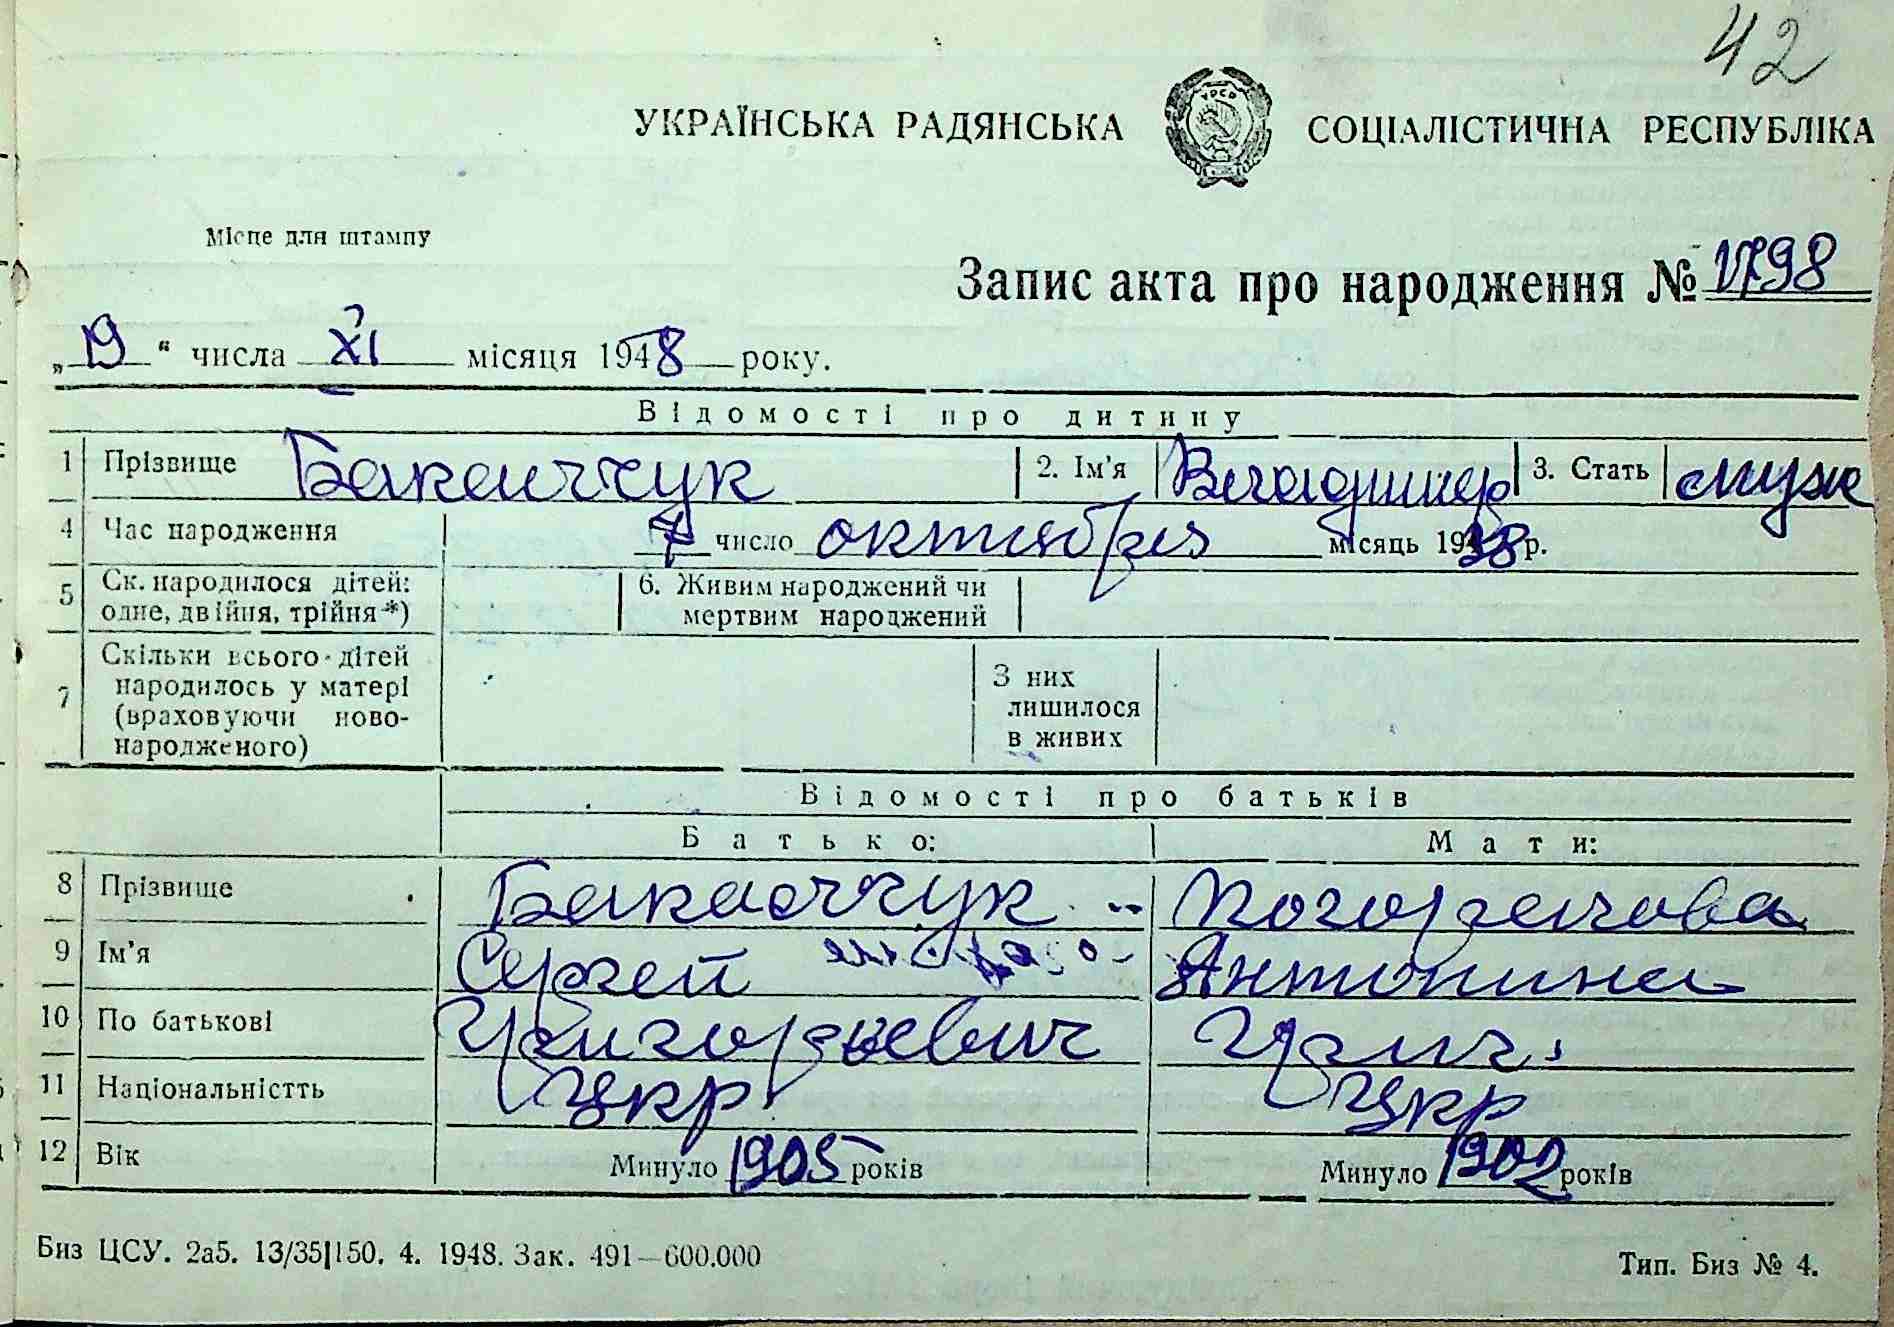 42
УКРАЇНСЬКА РАДЯНСЬКА СОЦІАЛІСТИЧНА РЕСПУБЛІКА
УРСР
Місце для штампу
Запис акта про народження №
„19“ числа XI місяця 1948 року.
Відомості про дитину
1 Прізвище 2. Ім'я Владимир 3. Стать муж
4 Час народження 7 число октября місяць 1938 р.
5 Ск. народилося дітей: 6. Живим народжений чи
одне, двійня, трійня*) мертвим народжений
7 Скільки всього дітей З них
народилось у матері лишилося
(враховуючи ново- в живих
народженого)
Відомості про батьків
Батько: Мати:
8 Прізвище
9 Ім'я Сергей Антонина
10 По батькові Григорьевич Григ.
11 Національністть Укр Укр
12 Вік Минуло 1905 років Минуло 1902 років
Биз ЦСУ. 2а5. 13/35|150. 4. 1948. Зак. 491—600.000 Тип. Биз № 4.